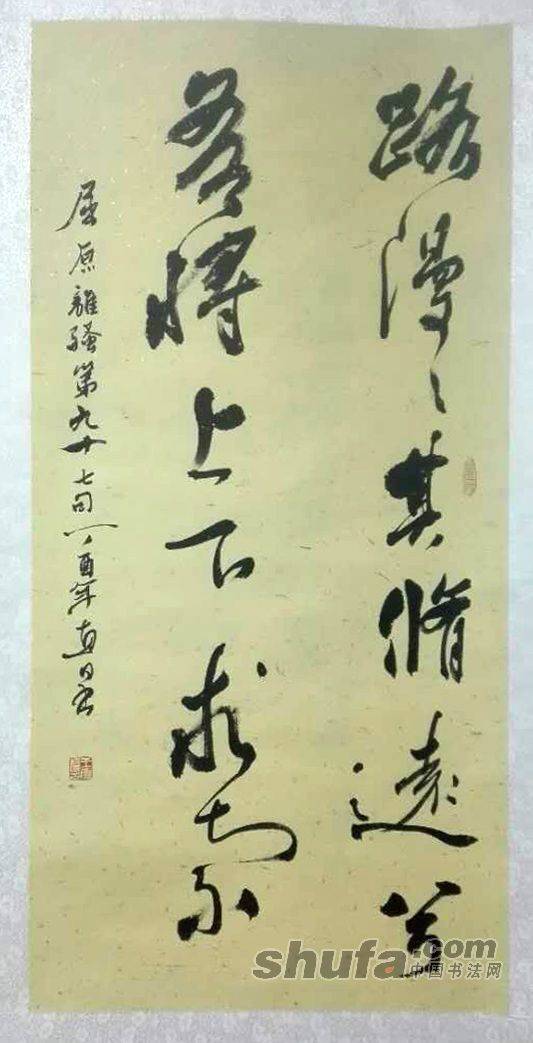 路漫々其脩遠兮
吾將上下求索
屈原離騷第九十七句丁酉年
shufa.com
中国书法网